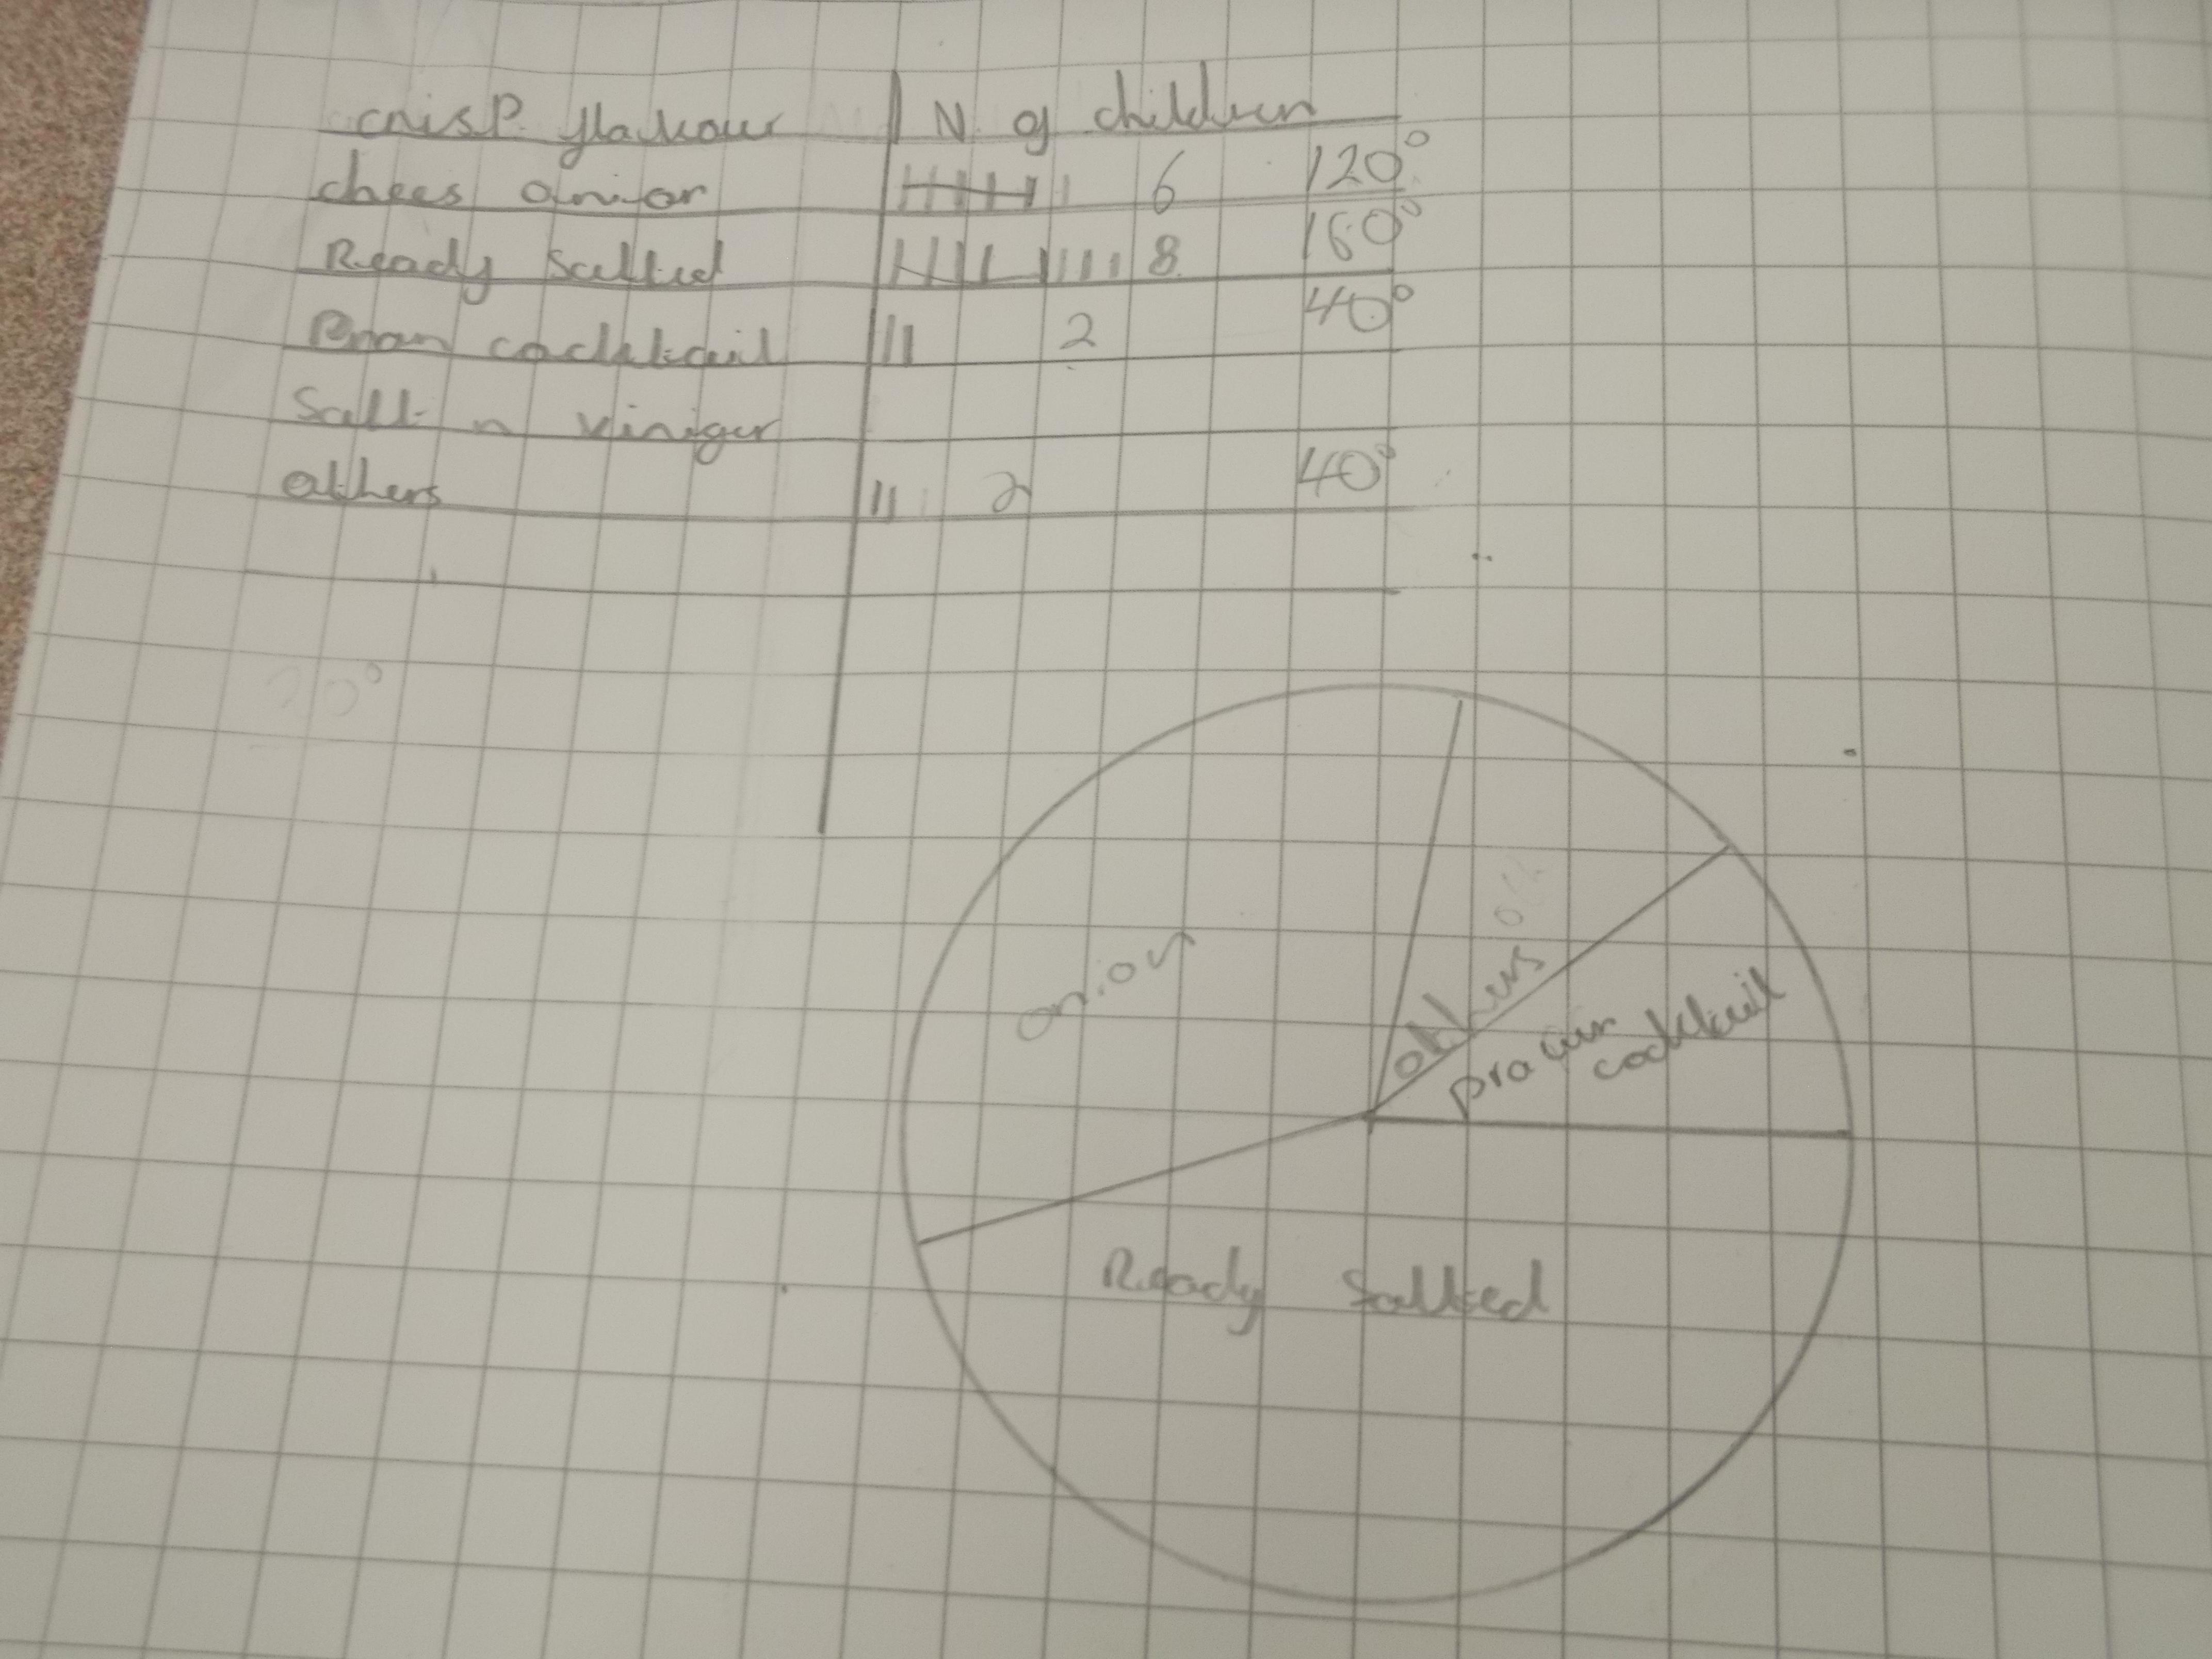 crisp flavour N. of children
chees onion 6 120°
Ready Salted 8 160°
Pran cocktail 2 40°
Salt n viniger
others 2 40°
20°
onion
others
prawn
cocktail
Ready Salted